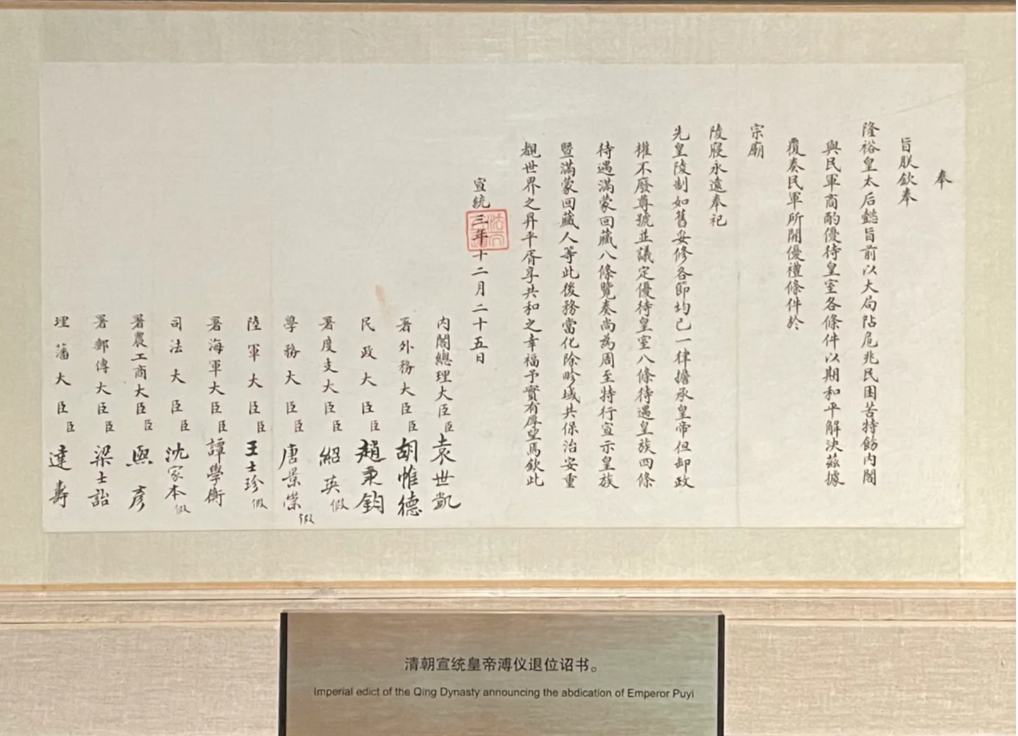 奉
旨朕欽奉
隆裕皇太后懿旨前以大局阽危兆民困苦特飭內閣
與民軍商酌優待皇室各條件以期和平解決茲據
覆奏民軍所開優禮條件於
宗廟
陵寢永遠奉祀
先皇陵制如舊妥修各節均已一律擔承皇帝但卸政
權不廢尊號並議定優待皇室八條待遇皇族四條
待遇滿蒙回藏八條覽奏尚為周至特行宣示皇族
暨滿蒙回藏人等此後務當化除畛域共保治安重
覩世界之昇平胥享共和之幸福予實有厚望焉欽此
宣統三年十二月二十五日
內閣總理大臣臣袁世凱
署外務大臣臣胡惟德
民政大臣臣趙秉鈞
署度支大臣臣紹英假
學務大臣臣唐景崇假
陸軍大臣臣王士珍假
署海軍大臣臣譚學衡
司法大臣臣沈家本假
署農工商大臣臣熙彥
署郵傳大臣臣梁士詒
理藩大臣臣達壽
清朝宣统皇帝溥仪退位诏书。
Imperial edict of the Qing Dynasty announcing the abdication of Emperor Puyi